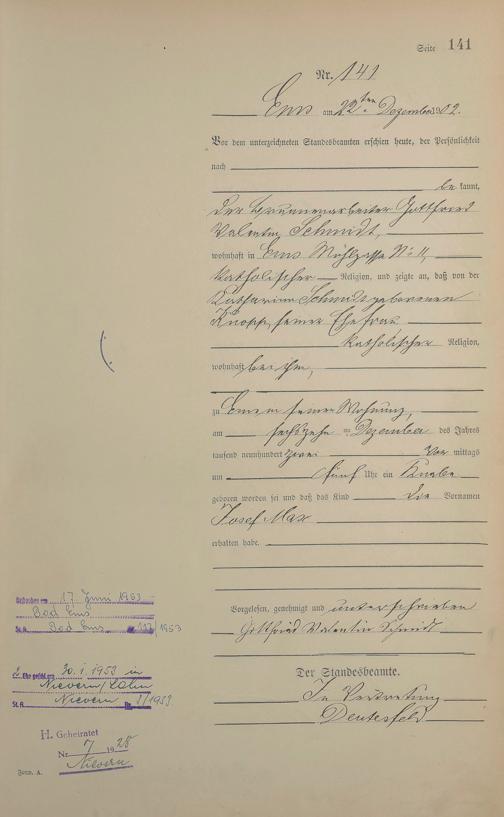 Seite 141
Nr. 141
Ems am 22ten Dezember 1902.
Vor dem unterzeichneten Standesbeamten erschien heute, der Persönlichkeit
nach
bekannt,
der Brunnenarbeiter Gottfried
Valentin Schmidt,
wohnhaft in Ems Mühlgasse No 11,
katholischer Religion, und zeigte an, daß von der
Katharina Schmidt geborenen
Knopp, seiner Ehefrau,
katholischer Religion,
wohnhaft bei ihm,
zu Ems in seiner Wohnung,
am sechszehnten Dezember des Jahres
tausend neunhundert zwei Vormittags
um fünf Uhr ein Knabe
geboren worden sei und daß das Kind die Vornamen
Josef Max
erhalten habe.
Vorgelesen, genehmigt und unterschrieben
Gottfried Valentin Schmidt
Der Standesbeamte.
In Vertretung
Deutesfeld
Gestorben am 17. Juni 1953
Bad Ems
St. A. Bad Ems 1953
2. Ehe geschl. am 30.1.1953 in
Nievern/Lahn
St. A. Nievern Nr. 1/1953
H. Geheiratet
Nr. 7 1928
Nievern
Form. A.